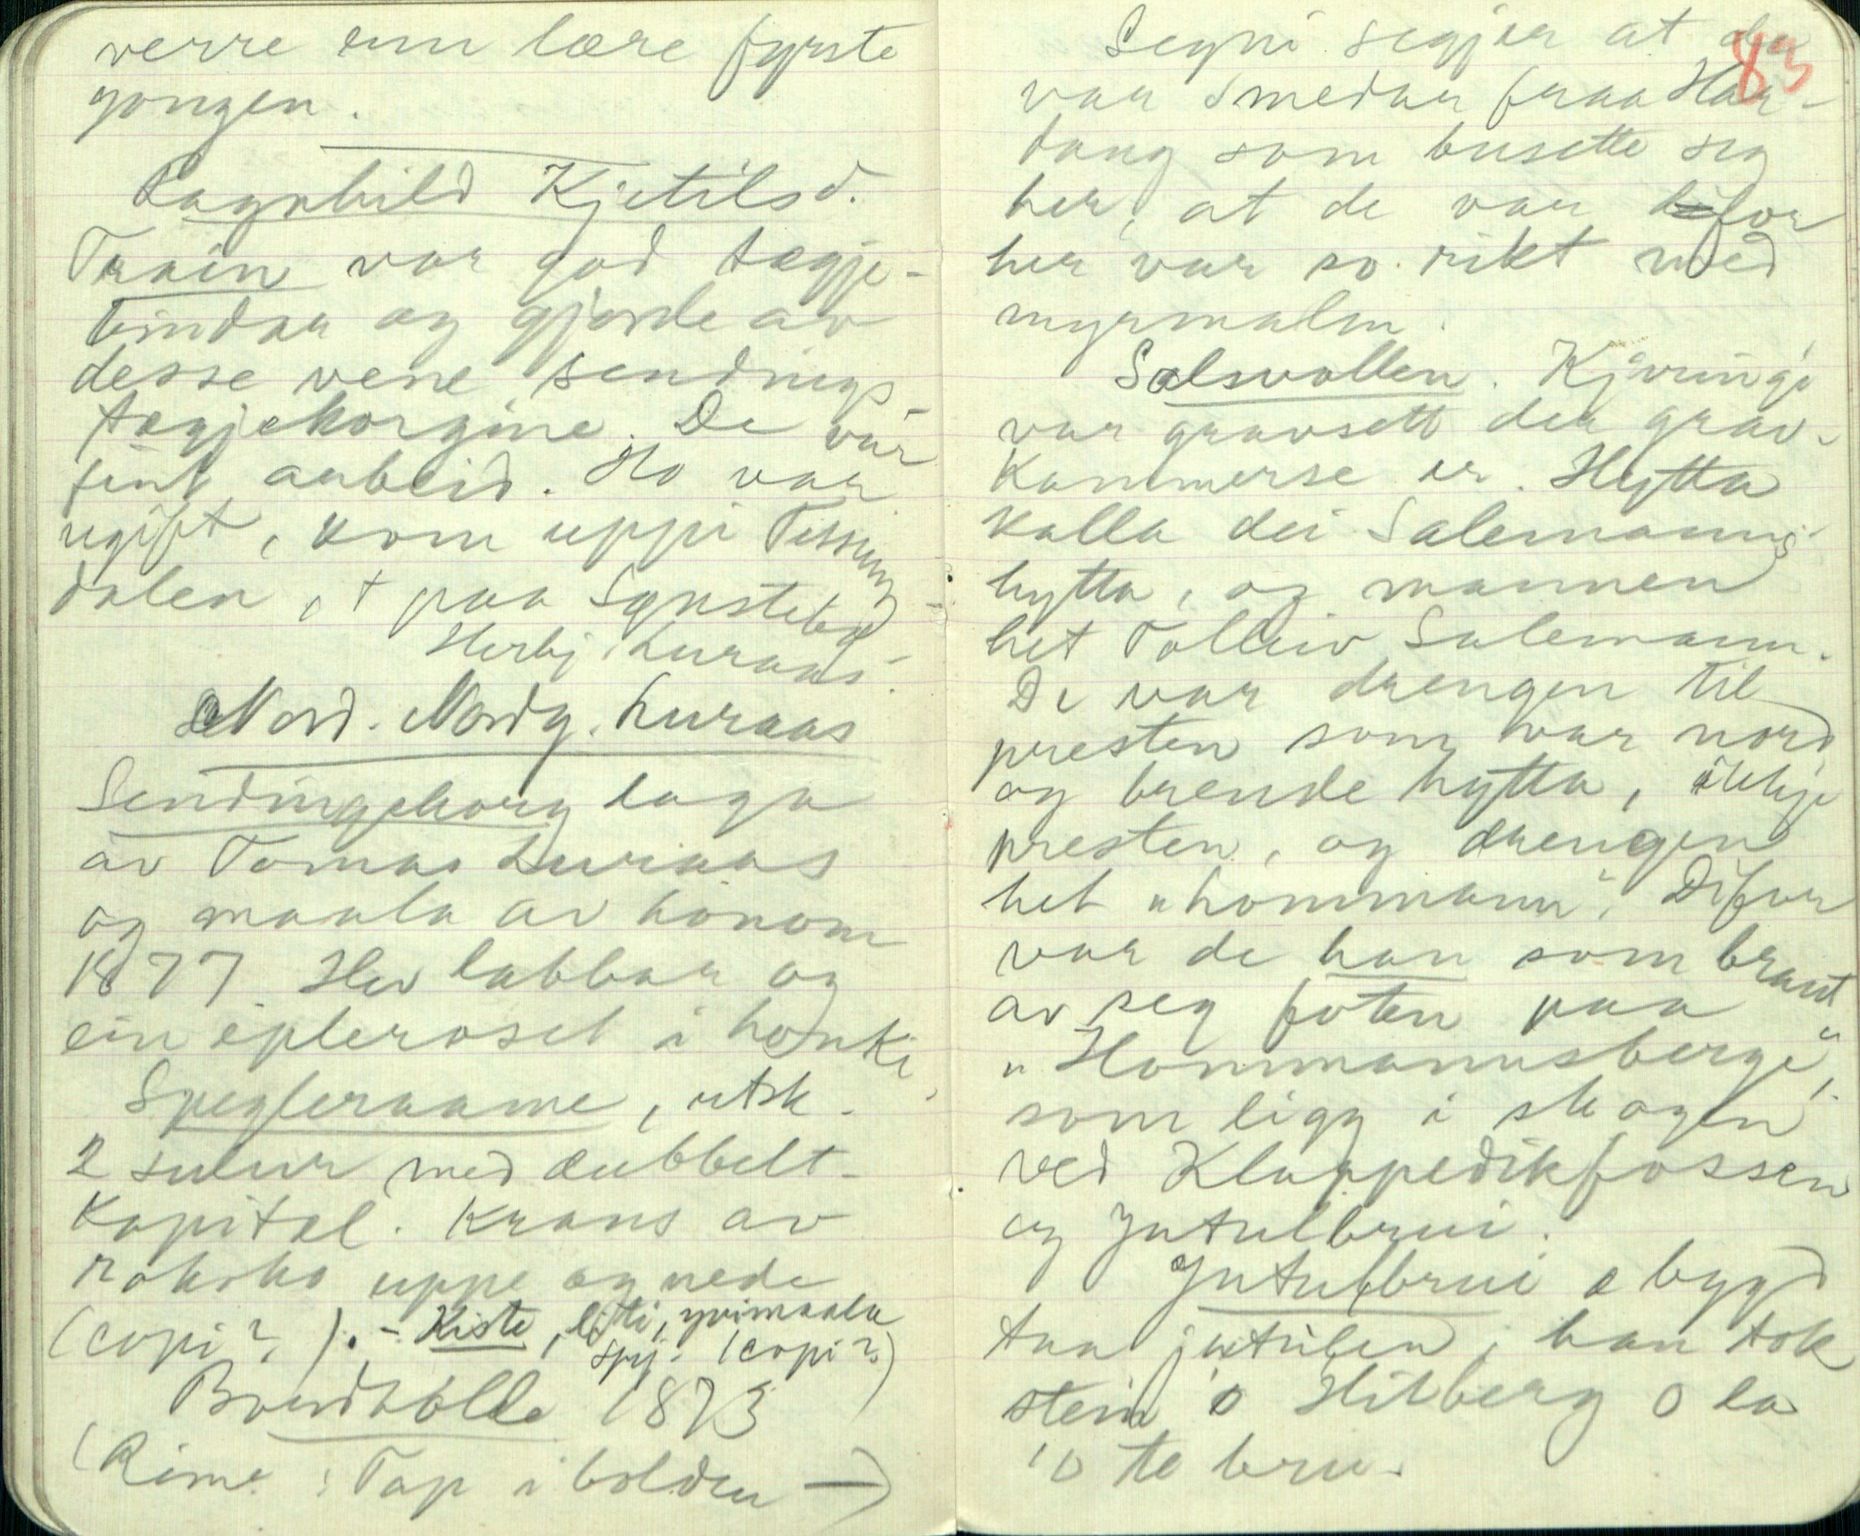 verre enn lære fyrste
gongen.
Ragnhild Kjetilsd.
Train var god tægje-
bindar og gjorde av
desse vene sendings-
tægjekorgine. De var
fint arbeid. Ho var
ugift, kom uppi Tessung-
dalen, † paa Synstebø
Herbj. Luraas.
Nord. Nordg. Luraas
Sendingskorg laga
av Tomas Luraas
og maala av honom
1877. Hev labbar og
ein epleroset i honki.
Spegleraame, utsk.
2 sulur med dubbelt-
kapitæl. Krans av
rokoko uppe og nede
(copi?). - Kiste, liti, yvimaala
spj. (copi?)
Brendebolle 1873
(Rime: Tap i bolden —)
83
Segni segjer at dea
var smedar fraa Har-
dang som busette seg
her, at de var difor
her var so rikt med
myrmalm.
Salsvollen. Kjæringi
var gravsett der grav-
kammerse er. Hytta
kalla dei Salemanns-
hytta, og mannen
het Tolleiv Salemann.
De var drengen til
presten som var nord
og brende hytta, ikkje
presten, og drengen
het "Hommann". Difor
var de han som braut
av seg foten paa
"Hommannsbergi",
som ligg i skogen
ved Kloppedikfossen
og Jutulbrui.
Jutulbrui æ bygd
taa jutulen, han tok
stein o Hitberg o la
o te bru.